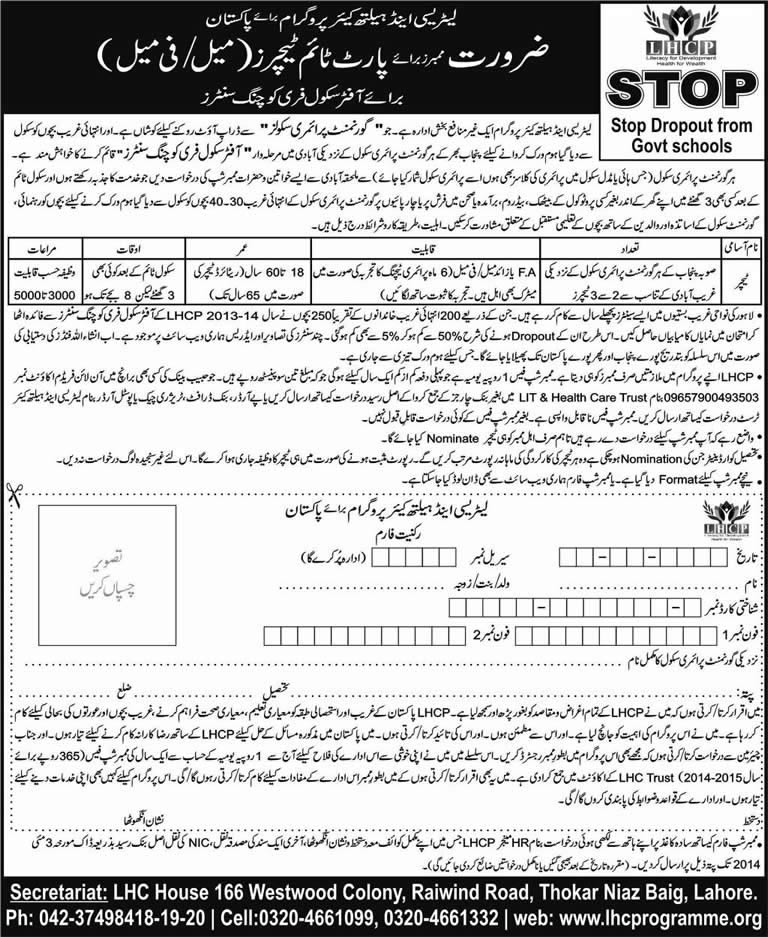 لیٹریسی اینڈ ہیلتھ کیئر پروگرام برائے پاکستان
ضرورت ممبرز برائے پارٹ ٹائم ٹیچرز (میل/فی میل)
برائے آفٹر سکول فری کوچنگ سنٹرز
LHCP
Literacy for Development
Health for Wealth
STOP
Stop Dropout from
Govt schools
لیٹریسی اینڈ ہیلتھ کیئر پروگرام ایک غیر منافع بخش ادارہ ہے۔ جو "گورنمنٹ پرائمری سکولز" سے ڈراپ آؤٹ روکنے کیلئے کوشاں ہے۔ اور انتہائی غریب بچوں کو سکول
سے دیا گیا ہوم ورک کروانے کیلئے پنجاب بھر کے ہر گورنمنٹ پرائمری سکول کے نزدیکی آبادی میں مرحلہ وار "آفٹر سکول فری کوچنگ سنٹرز" قائم کرنے کا خواہش مند ہے۔
ہر گورنمنٹ پرائمری سکول (جس ہائی یا مڈل سکول میں پرائمری کی کلاسز بھی ہوں اسے پرائمری سکول شمار کیا جائے) سے ملحقہ آبادی سے ایسے خواتین و حضرات ممبر شپ کی درخواست دیں جو خدمت کا جذبہ رکھتے ہوں اور سکول ٹائم
کے بعد کسی بھی 3 گھنٹے میں اپنے گھر کے اندر بغیر کسی پروٹوکول کے بیٹھک، بیڈروم، برآمدہ یا صحن میں فرش پر یا چارپائیوں پر گورنمنٹ پرائمری سکول کے انتہائی غریب 30-40 بچوں کو سکول سے دیا گیا ہوم ورک کرنے کیلئے بچوں کو رہنمائی،
گورنمنٹ سکول کے اساتذہ اور والدین کے ساتھ بچوں کے تعلیمی مستقبل کے متعلق مشاورت کر سکیں۔ اہلیت، طریقہ کار و شرائط درج ذیل ہیں۔
نام آسامی تعداد قابلیت عمر اوقات مراعات
ٹیچر
صوبہ پنجاب کے ہر گورنمنٹ پرائمری سکول کے نزدیکی
غریب آبادی کے تناسب سے 2 سے 3 ٹیچرز
F.A یا زائد میل/فی میل (6 ماہ پرائمری ٹیچنگ کا تجربہ کی صورت میں
میٹرک بھی اہل ہیں۔ تجربہ کا ثبوت ساتھ لگائیں)
18 تا 60 سال (ریٹائرڈ ٹیچر کی
صورت میں 65 سال تک)
سکول ٹائم کے بعد کوئی بھی
3 گھنٹے لیکن 8 بجے تک ہو
وظیفہ حسب قابلیت
3000 تا 5000
• لاہور کی نواحی غریب بستیوں میں ایسے سینٹرز پچھلے سال سے کام کر رہے ہیں۔ جن کے ذریعے 200 انتہائی غریب خاندانوں کے تقریباً 250 بچوں نے سال 2013-14 LHCP کے آفٹر سکول فری کوچنگ سنٹرز سے فائدہ اٹھا
کر امتحان میں نمایاں کامیابیاں حاصل کیں۔ اس طرح ان کے Dropout ہونے کی شرح 50% سے کم ہو کر 5% سے بھی کم ہو گئی۔ چند سنٹرز کی تصاویر اور ایڈریس ہماری ویب سائٹ پر موجود ہے۔ اب انشاء اللہ فنڈز کی دستیابی کی
صورت میں اس سلسلہ کو بتدریج پورے پنجاب اور پھر پورے پاکستان تک پھیلایا جائے گا۔ جس کیلئے ہوم ورک تیزی سے جاری ہے۔
• LHCP اپنے پروگرام میں ملازمتیں صرف ممبرز کو ہی دیتا ہے۔ ممبر شپ فیس 1 روپیہ یومیہ ہے جو پہلی دفعہ کم از کم ایک سال کیلئے ہو گی جو کہ مبلغ تین سو پینسٹھ روپے ہیں۔ جو حبیب بینک کی کسی بھی برانچ میں آن لائن فریڈم اکاؤنٹ نمبر
09657900493503 بنام LIT & Health Care Trust میں بغیر بنک چارجز کے جمع کروا کے اصل رسید درخواست کیساتھ ارسال کریں یا پے آرڈر، بنک ڈرافٹ، ٹریژری چیک یا پوسٹل آرڈر بنام لیٹریسی اینڈ ہیلتھ کیئر
ٹرسٹ درخواست کیساتھ ارسال کریں۔ ممبر شپ فیس ناقابل واپسی ہے۔ بغیر ممبر شپ فیس کے کوئی درخواست قابل قبول نہیں۔
• واضح رہے کہ آپ ممبر شپ کیلئے درخواست دے رہے ہیں تاہم صرف اہل ممبر کو ہی ٹیچر Nominate کیا جائے گا۔
• تحصیل کوارڈینیٹر جن کی Nomination ہو چکی ہے وہ ہر ٹیچر کی کارکردگی کی ماہانہ رپورٹ مرتب کریں گے۔ رپورٹ مثبت ہونے کی صورت میں ہی ٹیچر کا وظیفہ جاری ہوا کرے گا۔ اس لئے غیر سنجیدہ لوگ درخواست نہ دیں۔
• نیچے ممبر شپ کیلئے Format دیا گیا ہے۔ یا ممبر شپ فارم ہماری ویب سائٹ سے بھی ڈان لوڈ کیا جا سکتا ہے۔
لیٹریسی اینڈ ہیلتھ کیئر پروگرام برائے پاکستان
LHCP
Literacy for Development
Health for Wealth
رکنیت فارم
تصویر
چسپاں کریں
تاریخ سیریل نمبر (ادارہ پُر کرے گا)
نام ولد/بنت/زوجہ
شناختی کارڈ نمبر
فون نمبر 1 فون نمبر 2
نزدیکی گورنمنٹ پرائمری سکول کا مکمل نام
پتہ: تحصیل ضلع
میں اقرار کرتا/کرتی ہوں کہ میں نے LHCP کے تمام اغراض و مقاصد کو بغور پڑھ اور سمجھ لیا ہے۔ LHCP پاکستان کے غریب اور استحصالی طبقہ کو معیاری تعلیم، معیاری صحت فراہم کرنے، غریب بچوں اور عورتوں کی بحالی کیلئے کام
کر رہا ہے۔ میں نے اس پروگرام کی اہمیت کو جانچ لیا ہے۔ اور اس سے مطمئن ہوں۔ اور اس کی تائید کرتا/کرتی ہوں۔ میں پاکستان میں مذکورہ مسائل کے حل کیلئے LHCP کے ساتھ رضا کارانہ کام کرنے کیلئے تیار ہوں۔ اور جناب
چیئرمین سے درخواست کرتا/کرتی ہوں کہ مجھے بھی اس پروگرام میں بطور ممبر رجسٹرڈ کریں۔ اس سلسلے میں میں نے اپنی خوشی سے اس ادارے کی فلاح کیلئے آج سے 1 روپیہ یومیہ کے حساب سے ایک سال کی ممبر شپ فیس (365 روپے برائے
سال 2014-2015) LHC Trust کے اکاؤنٹ میں جمع کرا دی ہے۔ میں یہ بھی اقرار کرتا/کرتی ہوں کہ میں بطور ممبر اس ادارے کے مفادات کیلئے کام کرتا/کرتی رہوں گا/گی۔ اس پروگرام کیلئے کہیں بھی اپنی خدمات دینے کیلئے
تیار ہوں۔ اور ادارے کے قواعد و ضوابط کی پابندی کروں گا/گی۔
دستخط نشان انگھوٹھا
• ممبر شپ فارم کیساتھ سادہ کاغذ پر اپنے ہاتھ سے لکھی ہوئی درخواست بنام HR منیجر LHCP جس میں اپنے مکمل کوائف معہ دستخط و نشان انگھوٹھا، آخری ایک سند کی مصدقہ نقل، NIC کی نقل، اصل بنک رسید بذریعہ ڈاک مورخہ 3 مئی
2014 تک پتہ ذیل پر ارسال کر دیں۔ (مقررہ تاریخ کے بعد بھیجی گئیں یا نامکمل درخواستیں ضائع کر دی جائیں گی)۔
Secretariat: LHC House 166 Westwood Colony, Raiwind Road, Thokar Niaz Baig, Lahore.
Ph: 042-37498418-19-20 | Cell:0320-4661099, 0320-4661332 | web: www.lhcprogramme.org